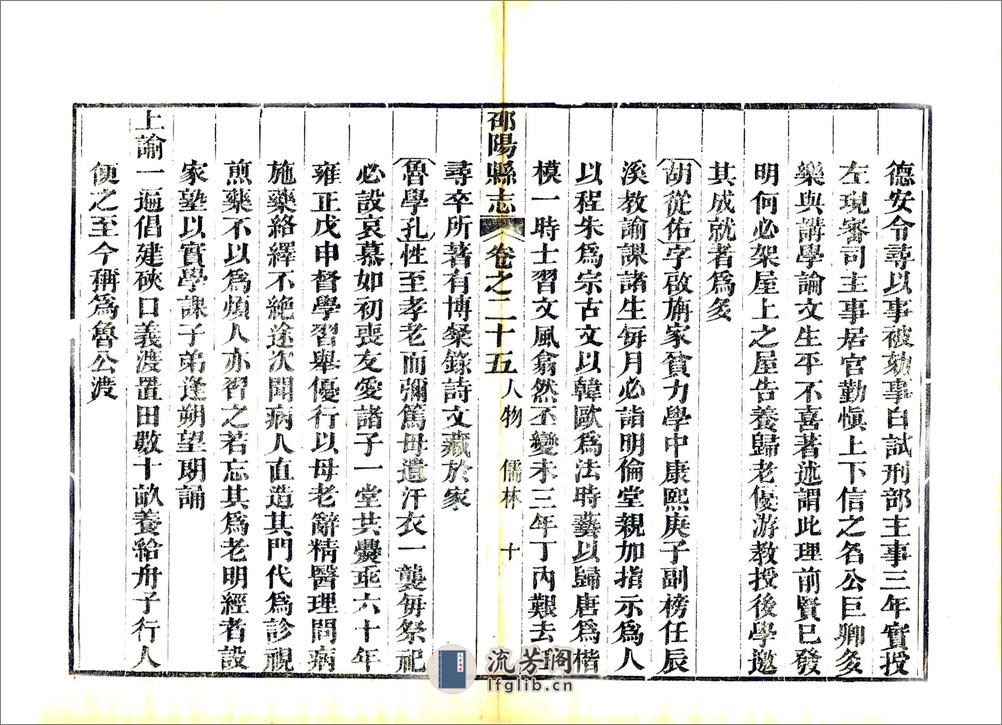 德安令尋以事被劾事白試刑部主事三年實授
左現審司主事居官勤慎上下信之名公巨卿多
樂與講學論文生平不喜著述謂此理前賢已發
明何必架屋上之屋告養歸老優游教授後學邀
其成就者爲多
胡從佑字啟旃家貧力學中康熙庚子副榜任辰
溪教諭課諸生每月必詣明倫堂親加指示爲人
以程朱爲宗古文以韓歐爲法時藝以歸唐爲楷
模一時士習文風翕然丕變未三年丁內艱去
尋卒所著有博粲錄詩文藏於家
邵陽縣志 卷之二十五 人物 儒林 十
魯學孔性至孝老而彌篤母遺汗衣一襲每祭祀
必設哀慕如初喪友愛諸子一堂共爨乖六十年
雍正戊申督學習舉優行以母老辭精醫理問病
施藥絡繹不絕途次聞病人直造其門代爲診視
煎藥不以爲煩人亦習之若忘其爲老明經者設
家塾以實學課子弟逢朔望朗誦
上諭一遍倡建硤口義渡置田數十畝養給舟子行人
便之至今稱爲魯公渡
流芳閣
lfglib.cn